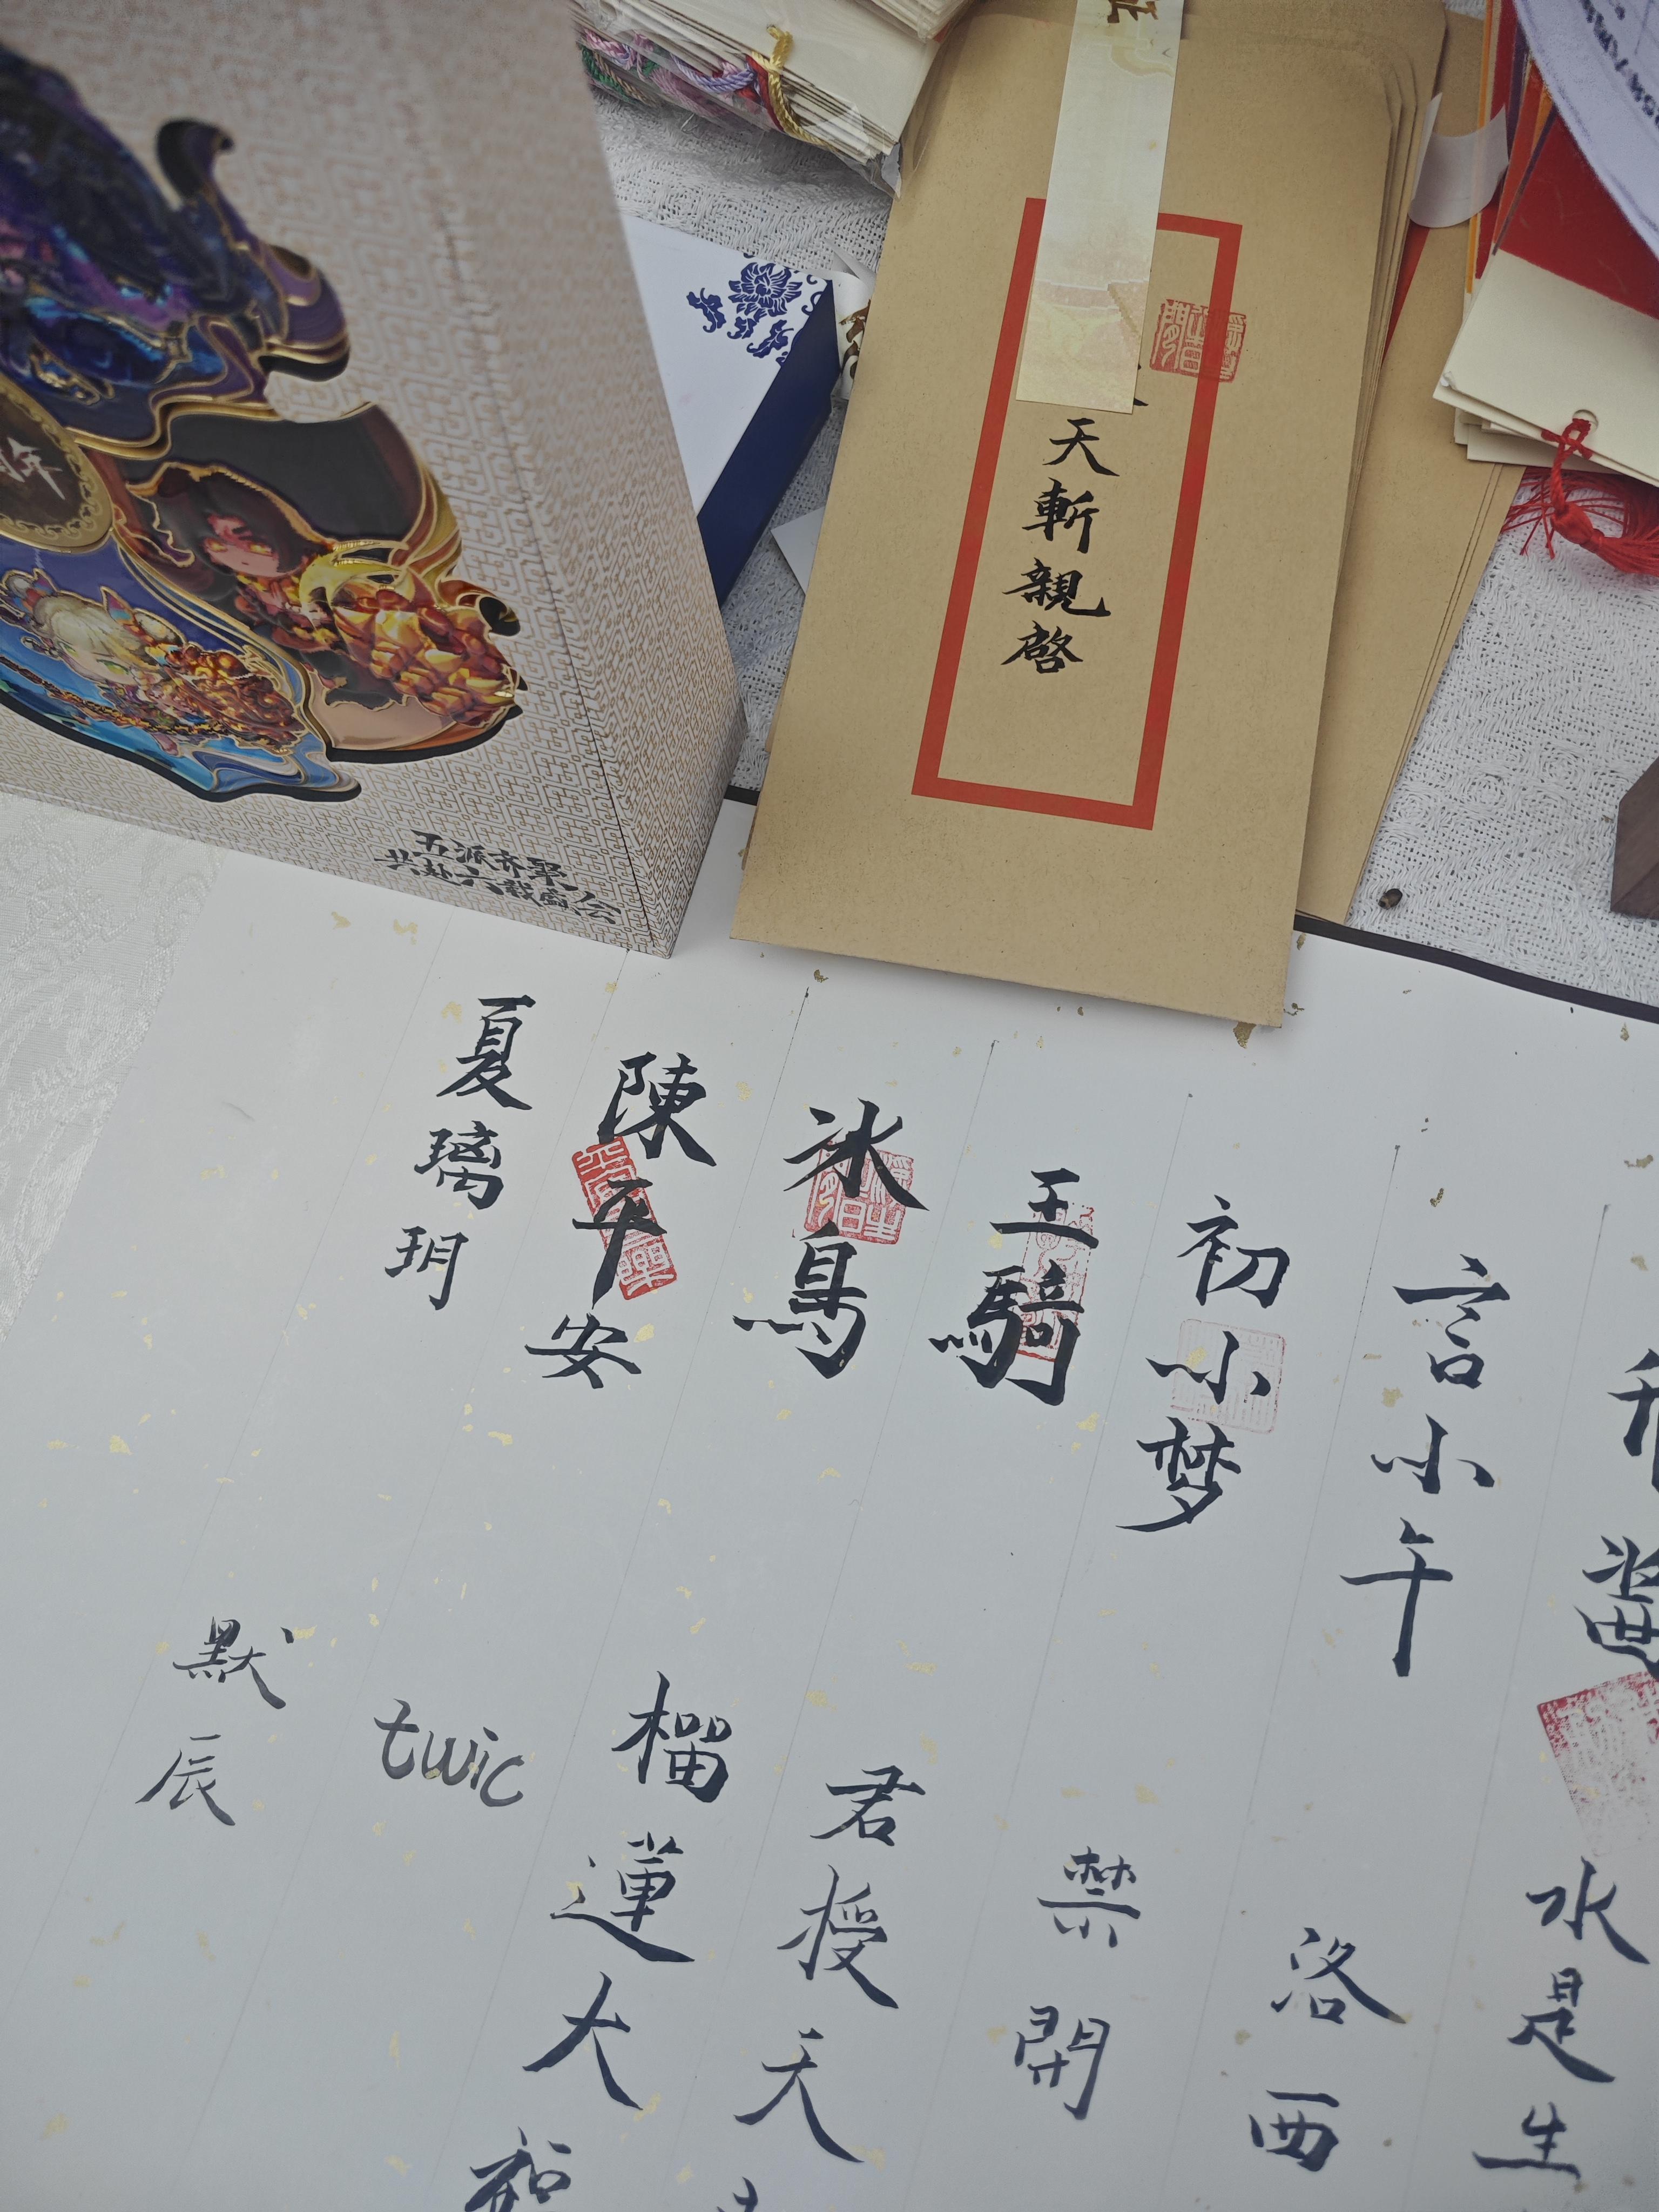 天斬親啓
五派齐聚
共赴六载盛会
周年
水是生
言小午
洛西
初小梦
禁開
王騎
君授天
冰鳥
榴蓮大
陳平安
twic
夏璃玥
默辰